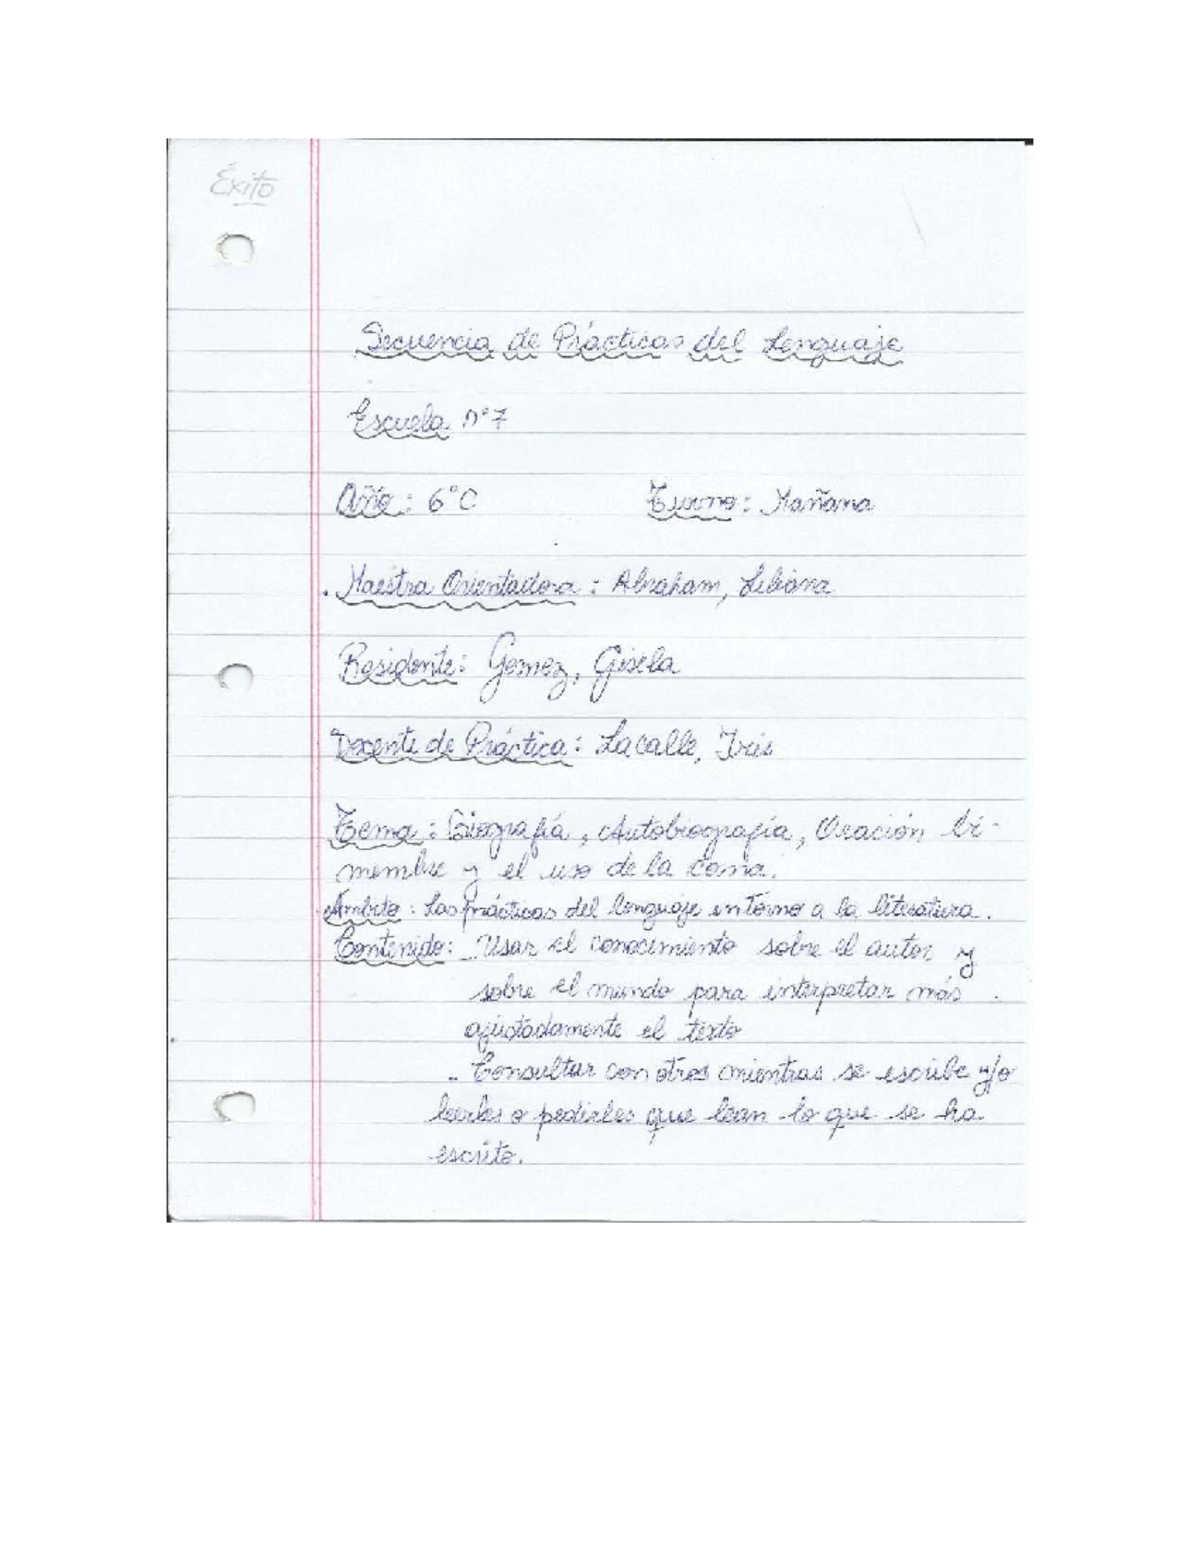 Éxito
Secuencia de Prácticas del Lenguaje
Escuela N°7
Año: 6°C Turno: Mañana
. Maestra Orientadora: Abraham, Liliana
Residente: Gomez, Gisela
Docente de Práctica: Lacalle, Iris
Tema: Biografía, Autobiografía, Oración bi-
membre y el uso de la coma.
Ámbito: Las prácticas del lenguaje en torno a la literatura.
Contenido: Usar el conocimiento sobre el autor y
sobre el mundo para interpretar más
ajustadamente el texto
- Consultar con otros mientras se escribe y/o
leerles o pedirles que lean lo que se ha
escrito.